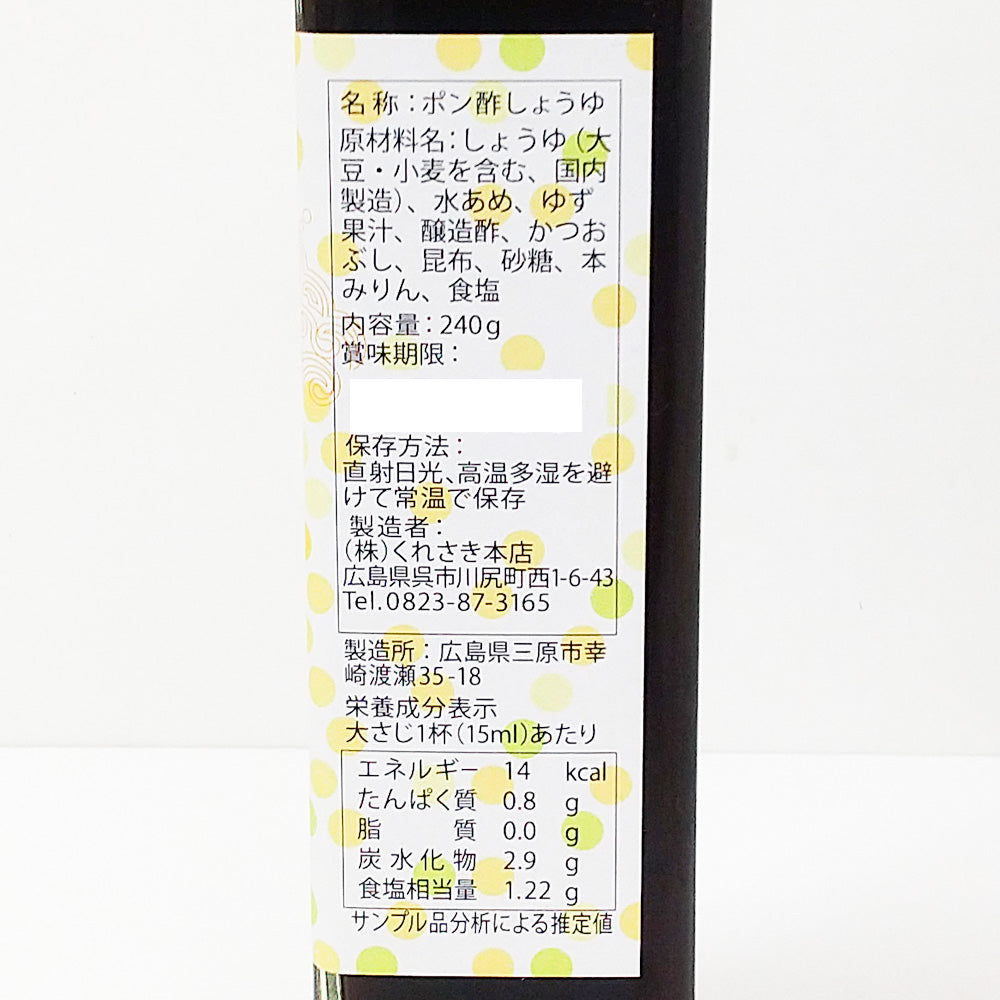 名称：ポン酢しょうゆ
原材料名：しょうゆ（大
豆・小麦を含む、国内
製造）、水あめ、ゆず
果汁、醸造酢、かつお
ぶし、昆布、砂糖、本
みりん、食塩
内容量：240g
賞味期限：
保存方法：
直射日光、高温多湿を避
けて常温で保存
製造者：
（株）くれさき本店
広島県呉市川尻町西1-6-43
Tel.0823-87-3165
製造所：広島県三原市幸
崎渡瀬35-18
栄養成分表示
大さじ1杯（15ml）あたり
エネルギー 14 kcal
たんぱく質 0.8 g
脂質 0.0 g
炭水化物 2.9 g
食塩相当量 1.22 g
サンプル品分析による推定値